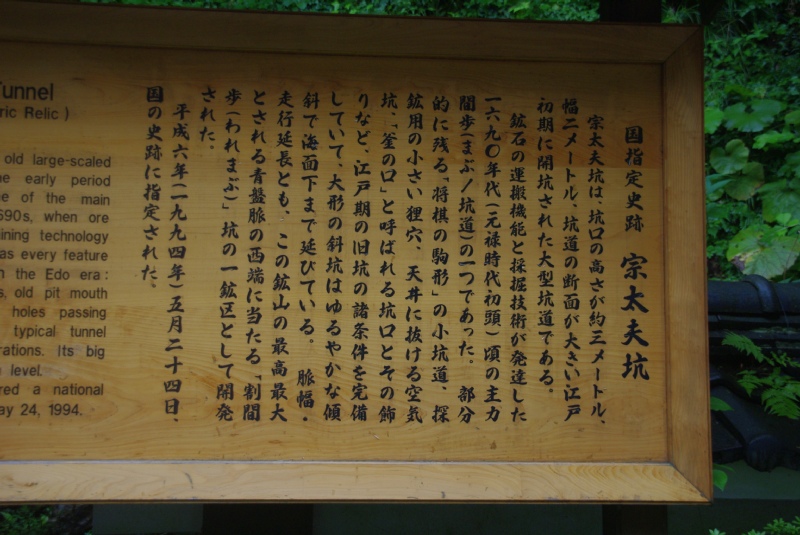 国指定史跡 宗太夫坑
宗太夫坑は、坑口の高さが約三メートル、
幅二メートル、坑道の断面が大きい江戸
初期に開坑された大型坑道である。
鉱石の運搬機能と採掘技術が発達した
一六九〇年代(元禄時代・初頭)頃の主力
間歩(まぶ/坑道)の一つであった。部分
的に残る「将棋の駒形」の小坑道、探
鉱用の小さい狸穴、天井に抜ける空気
坑、「釜の口」と呼ばれる坑口とその飾
りなど、江戸期の旧坑の諸条件を完備
していて、大形の斜坑はゆるやかな傾
斜で海面下まで延びている。脈幅・
走行延長とも、この鉱山の最高最大
とされる青盤脈の西端に当たる「割間
歩(われまぶ)」坑の一鉱区として開発
された。
平成六年(一九九四年)五月二十四日、
国の史跡に指定された。
Tunnel
ric Relic )
old large-scaled
e early period
e of the main
690s, when ore
ining technology
as every feature
n the Edo era :
s, old pit mouth
holes passing
typical tunnel
rations. Its big
level.
red a national
ay 24, 1994.